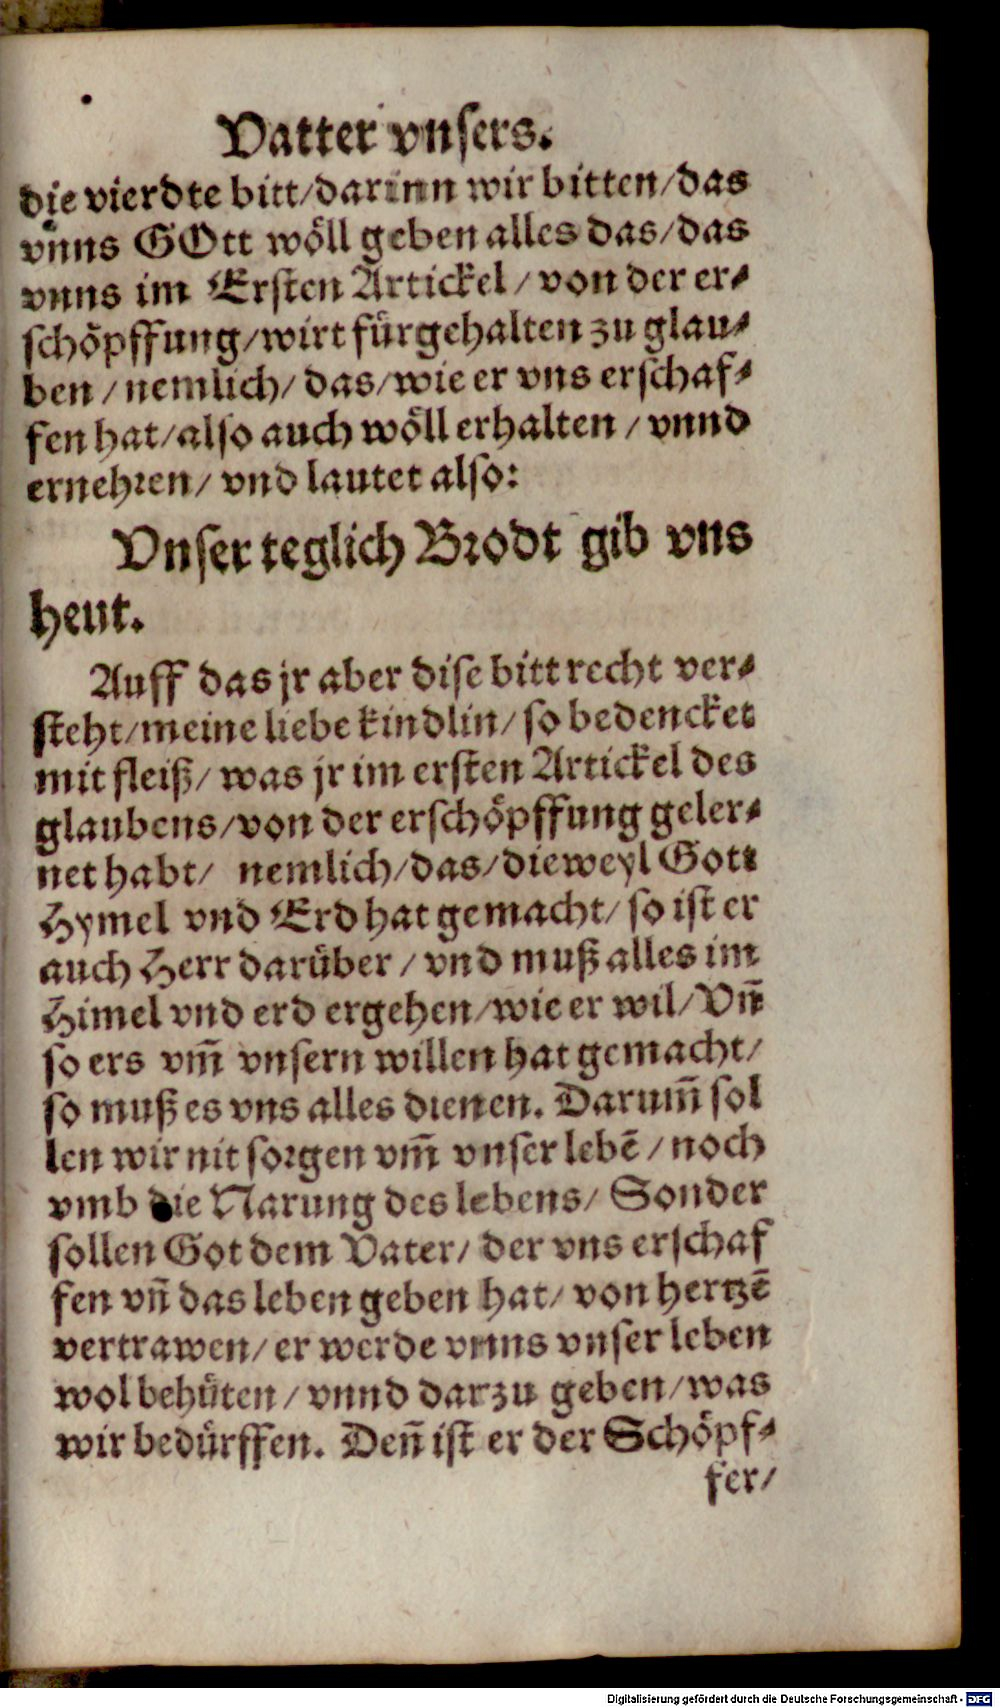 Vatter vnsers.
die vierdte bitt/darinn wir bitten/das
vnns GOtt wöll geben alles das/das
vnns im Ersten Artickel/von der er-
schöpffung/wirt fürgehalten zu glau-
ben/nemlich/das/wie er vns erschaf-
fen hat/also auch wöll erhalten/vnnd
ernehren/vnd lautet also:
Vnser teglich Brodt gib vns
heut.
Auff das jr aber dise bitt recht ver-
steht/meine liebe kindlin/so bedencket
mit fleiß/was jr im ersten Artickel des
glaubens/von der erschöpffung geler-
net habt/ nemlich/das/dieweyl Gott
Hymel vnd Erd hat gemacht/so ist er
auch Herr darüber/vnd muß alles im
Himel vnd erd ergehen/wie er wil/Vñ
so ers vm̃ vnsern willen hat gemacht/
so muß es vns alles dienen. Darum̃ sol
len wir nit sorgen vm̃ vnser lebẽ/noch
vmb die Narung des lebens/Sonder
sollen Got dem Vater/der vns erschaf
fen vñ das leben geben hat/von hertzẽ
vertrawen/er werde vnns vnser leben
wol behüten/vnnd darzu geben/was
wir bedürffen. Deñ ist er der Schöpf-
fer/
Digitalisierung gefördert durch die Deutsche Forschungsgemeinschaft - DFG